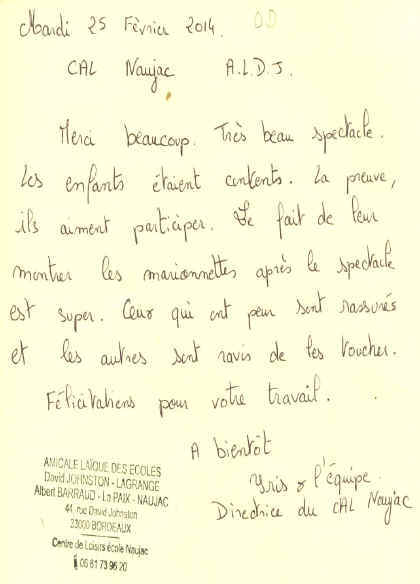 Mardi 25 Février 2014.
CAL Naujac A.L.D.J.
Merci beaucoup. Très beau spectacle.
Les enfants étaient contents. La preuve,
ils aiment participer. Le fait de leur
montrer les marionnettes après le spectacle
est super. Ceux qui ont peur sont rassurés
et les autres sont ravis de les toucher.
Félicitations pour votre travail.
A bientôt
Yris & l'équipe.
Directrice du CAL Naujac
AMICALE LAÏQUE DES ECOLES
David JOHNSTON - LAGRANGE
Albert BARRAUD - La PAIX - NAUJAC
44, rue David Johnston
33000 BORDEAUX
Centre de Loisirs école Naujac
06 81 73 96 20